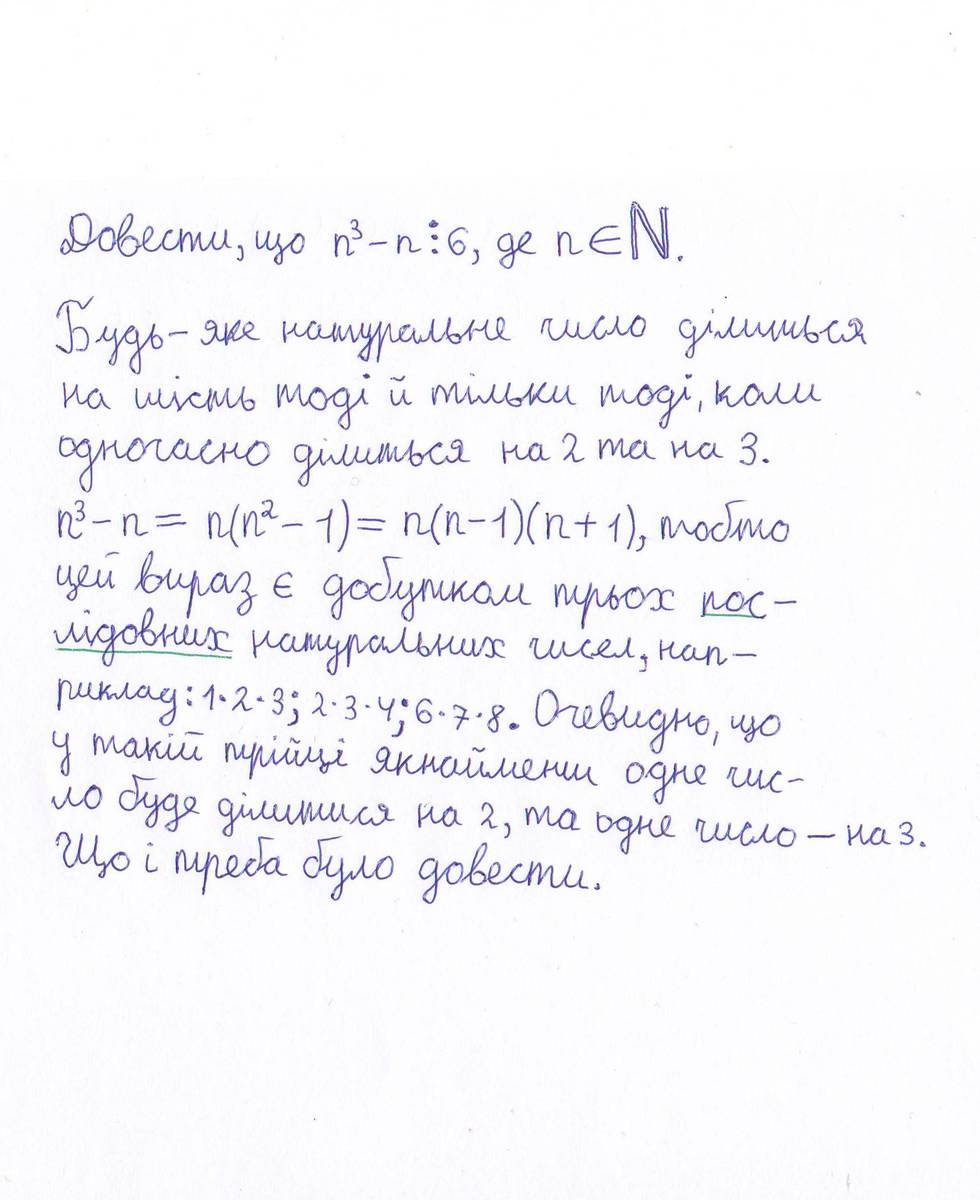 Довести, що n³-n⋮6, де n∈ℕ.
Будь-яке натуральне число ділиться
на шість тоді й тільки тоді, коли
одночасно ділиться на 2 та на 3.
n³-n = n(n²-1) = n(n-1)(n+1), тобто
цей вираз є добутком трьох пос-
лідовних натуральних чисел, нап-
риклад: 1·2·3; 2·3·4; 6·7·8. Очевидно, що
у такій трійці якнайменш одне чис-
ло буде ділитися на 2, та одне число — на 3.
Що і треба було довести.